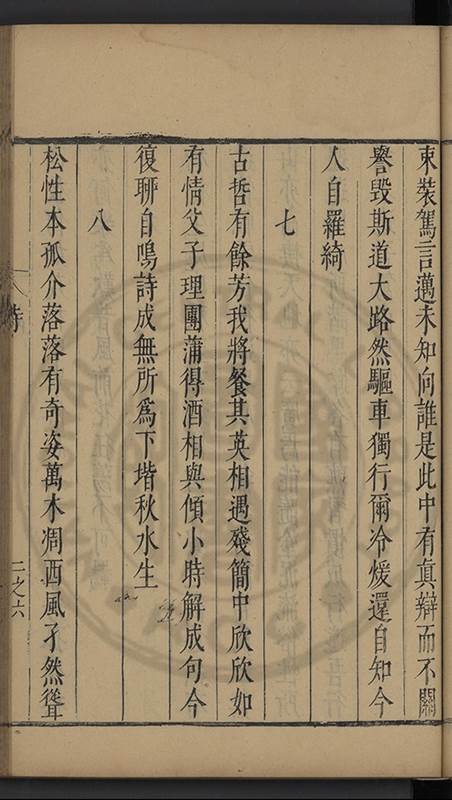 束裝駕言邁未知向誰是此中有真辯而不關
譽毀斯道大路然驅車獨行爾冷煖還自知今
人自羅綺
七
古哲有餘芳我將餐其英相遇殘簡中欣欣如
有情父子理團蒲得酒相與傾小時解成句今
復聊自鳴詩成無所為下堦秋水生
八
松性本孤介落落有奇姿萬木凋西風孑然聳
詩
二之六